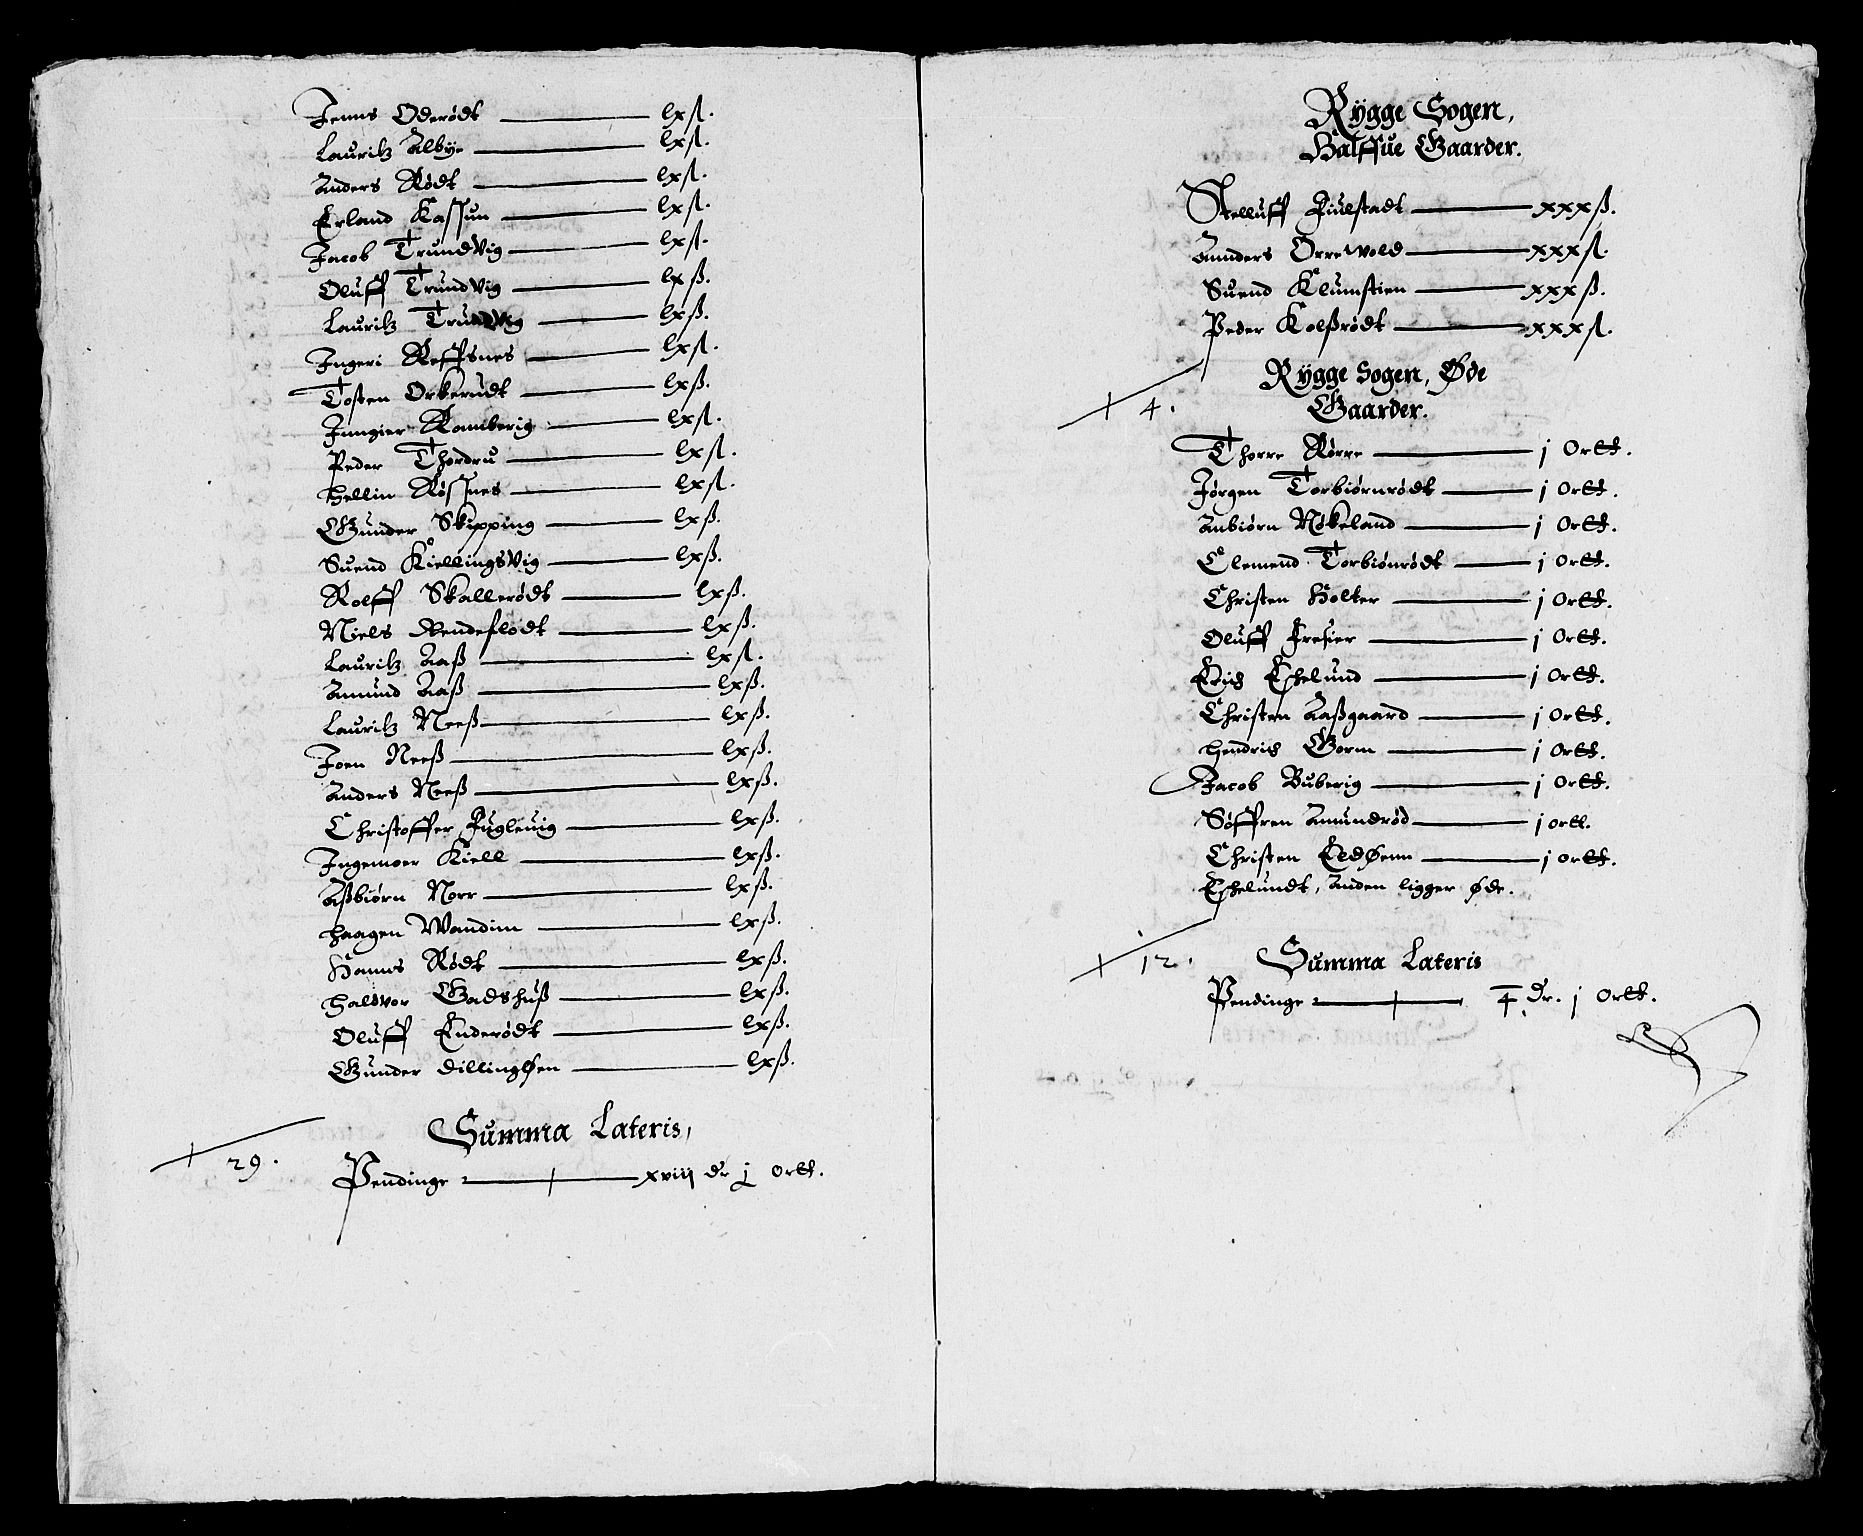 Jenns Oderødt — lxß.
Lauritz Albye — lxß.
Anders Rødt — lxß.
Erland Kassun — lxß.
Jacob Trundvig — lxß.
Oluff Trundvig — lxß.
Lauritz Trundvig — lxß.
Jngeri Reffsnes — lxß.
Tosten Orkerudt — lxß.
Jungier Ramberig — lxß.
Peder Thordru — lxß.
Hellin Røssnes — lxß.
Gunder Skipping — lxß.
Suend Kiellingsvig — lxß.
Rolff Skallerødt — lxß.
Niels Rendeflodt — lxß.
Lauritz Aaß — lxß.
Amund Aaß — lxß.
Lauritz Neeß — lxß.
Joen Neeß — lxß.
Anders Neeß — lxß.
Christoffer Fugleuig — lxß.
Jngemoer Kiell — lxß.
Aßbiørn Norr — lxß.
Haagen Wandim — lxß.
Hanns Rødt — lxß.
Haldvor Gadshuß — lxß.
Oluff Enderødt — lxß.
Gunder Dillingøen — lxß.
Summa Lateris,
29.
Pendinge — xviij dr j ortt.
Rÿgge Sogen,
Halffue Gaarder.
Stelluff Fiulstadt — xxxß.
Annders Orrewold — xxxß.
Suend Klumstien — xxxß.
Peder Kolßrødt — xxxß.
4.
Rÿgge Sogen, Øde
Gaarder.
Thorre Rørre — j ortt.
Jørgen Torbiørnrødt — j ortt.
Anbiørn Nøkeland — j ortt.
Clemend Torbiønrødt — j ortt.
Christen Holter — j ortt.
Oluff Fresier — j ortt.
Erich Eskelund — j ortt.
Christen Aaßgaard — j ortt.
Hendrich Gorm — j ortt.
Jacob Buberig — j ortt.
Søffren Amundrød — j ortt.
Christen Eldøenn — j ortt.
Eskelundt, Anden ligger øde.
12.
Summa Lateris
Pendinge — 4 dr. j ortt.